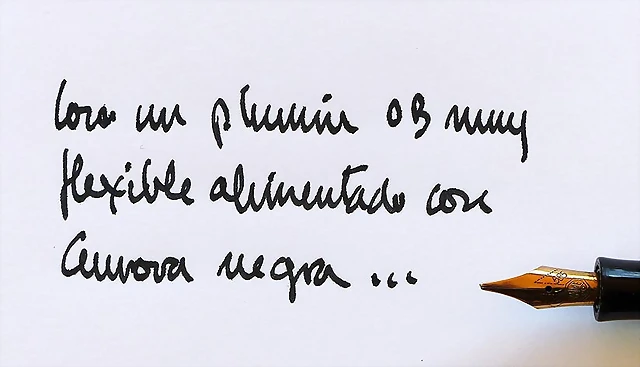 Con un plumín OB muy
flexible alimentado con
Aurora negra ...